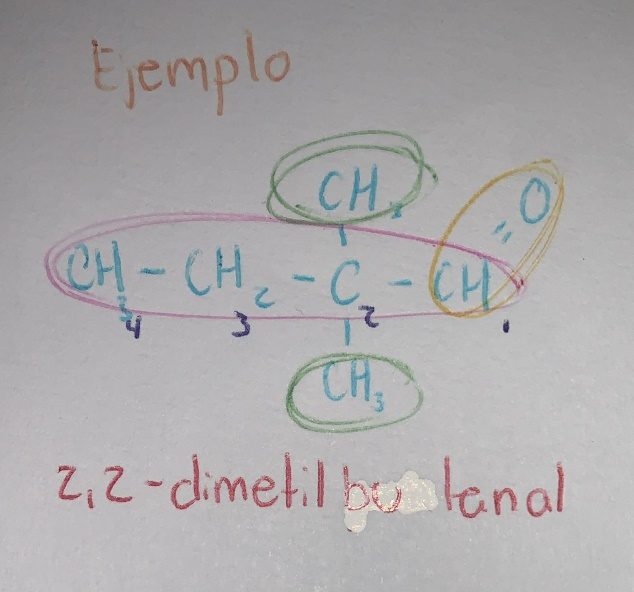 Ejemplo
CH₃
O
CH₃ - CH₂ - C - CH
4 3 2 1
CH₃
2,2-dimetil butanal